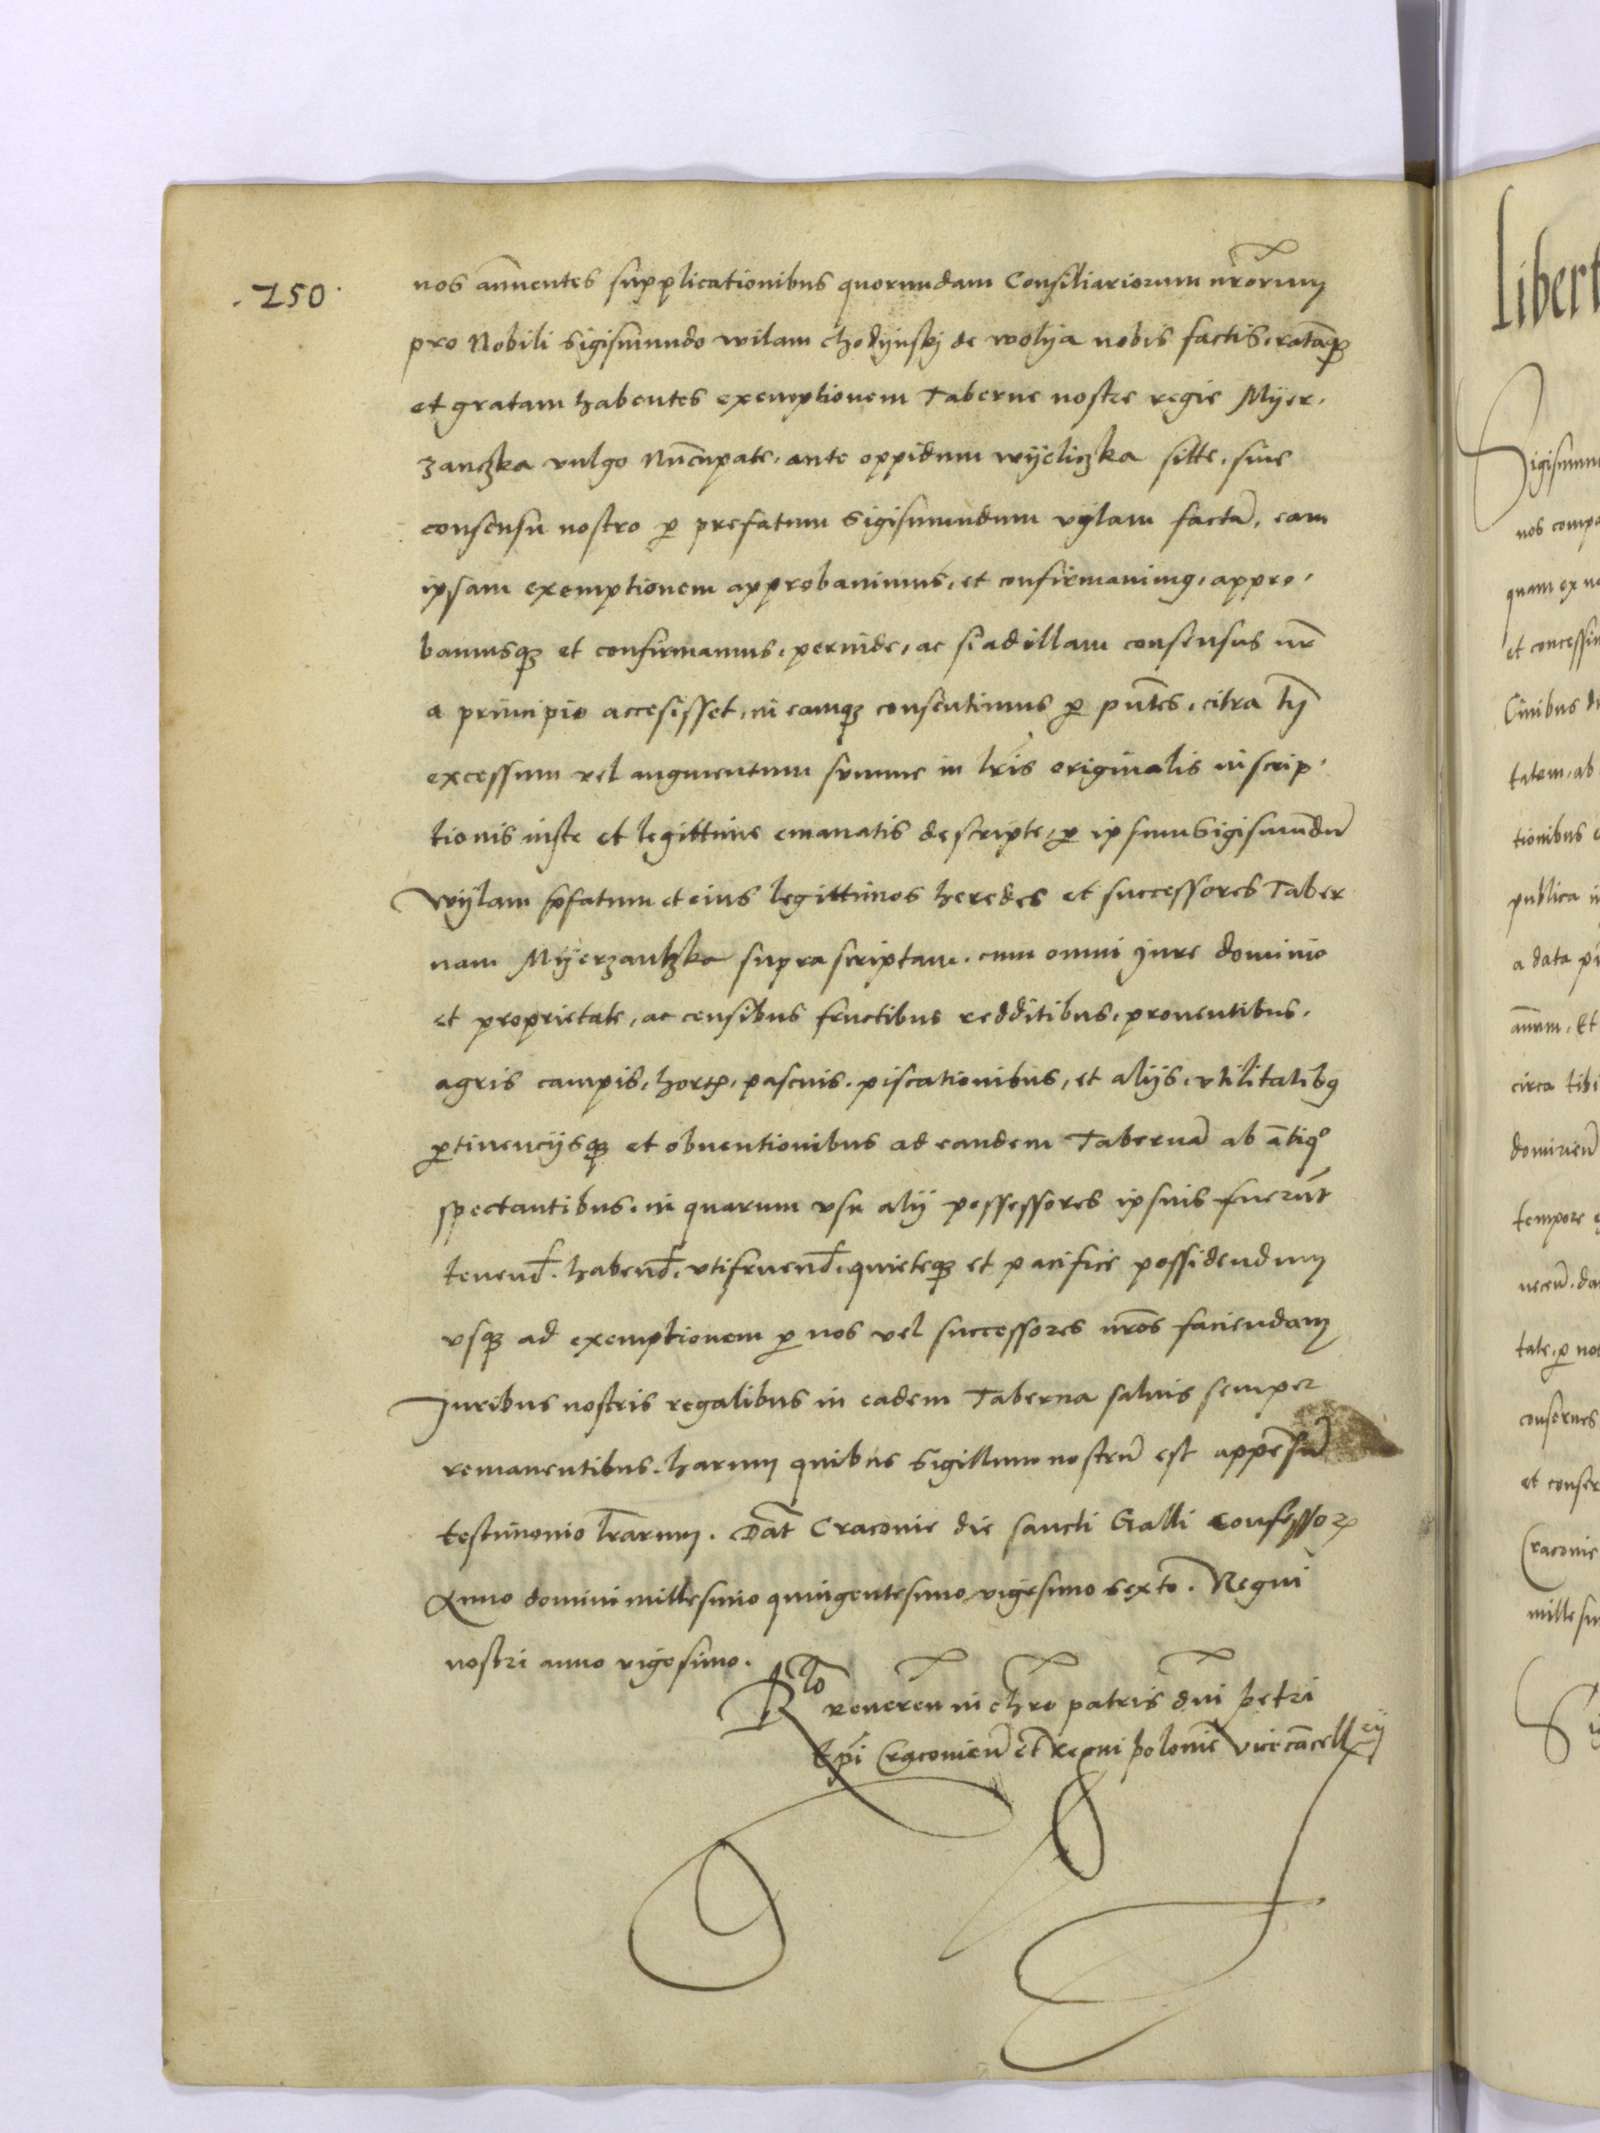 .250.
nos annuentes supplicationibus quorundam Consiliariorum nrorum
pro Nobili Sigismundo wilam chodyinskj de wolya nobis factis, ratāq3
et gratam habentes exemptionem Taberne nostre regie Myer,
zanczka vulgo Nūcupate, ante oppidum wyeliczka sitte, sine
consensu nostro ꝑ prefatum Sigismundum vylam factā, eam
ipsam exemptionem approbauimus, et confirmauimꝰ, appro,
bamusq3 et confirmamus, perinde, ac si ad illam consensus nr̄
a principio accesisset, in eamq3 consentimus ꝑ pn̄tes, citra tn̄
excessum vel augmentum summe in lr̄is originalis inscrip,
tionis iuste et legittime emanatis descripte, ꝑ ipsum Sigismundū
wylam p̄fatum et eius legittimos heredes et successores Taber
nam Myerzanczka suprascriptam, cum omni Jure dominio
et proprietate, ac censibus fructibus redditibus, prouentibus,
agris campis, hortꝭ, pascuis, piscationibus, et alijs, vtilitatibꝰ
ꝑtinencijsq3 et obuentionibus ad eandem Tabernā ab ātiqo
spectantibus, in quarum vsu alij possessores ipsius fuerūt
tenend. habend. vtifruend. quieteq3 et pacifice possidendum
vsq3 ad exemptionem ꝑ nos vel successores nr̄os faciendam
Juribus nostris regalibus in eadem Taberna saluis semper
remanentibus. harum quibus Sigillum nostrū est appensū
testimonio lr̄arum. Dat̄ Craconie die sancti Galli confessorꝭ
Anno domini millesimo quingentesimo vigesimo sexto. Regni
nostri anno vigesimo.
Rlo reueren in chro patris dni petri
Epi Craconien̄ et Regni polonie vicecācellrij
libert
Sigismun
nos compa
quam ex no
et concessim
Ciuibus
tatem, ab
tionibus
publica
a data
annum, Et
circa tibi
domicien̄
tempore
necen̄. da
tate, ꝑ nos
conserues
et conser
Craconie
millesim